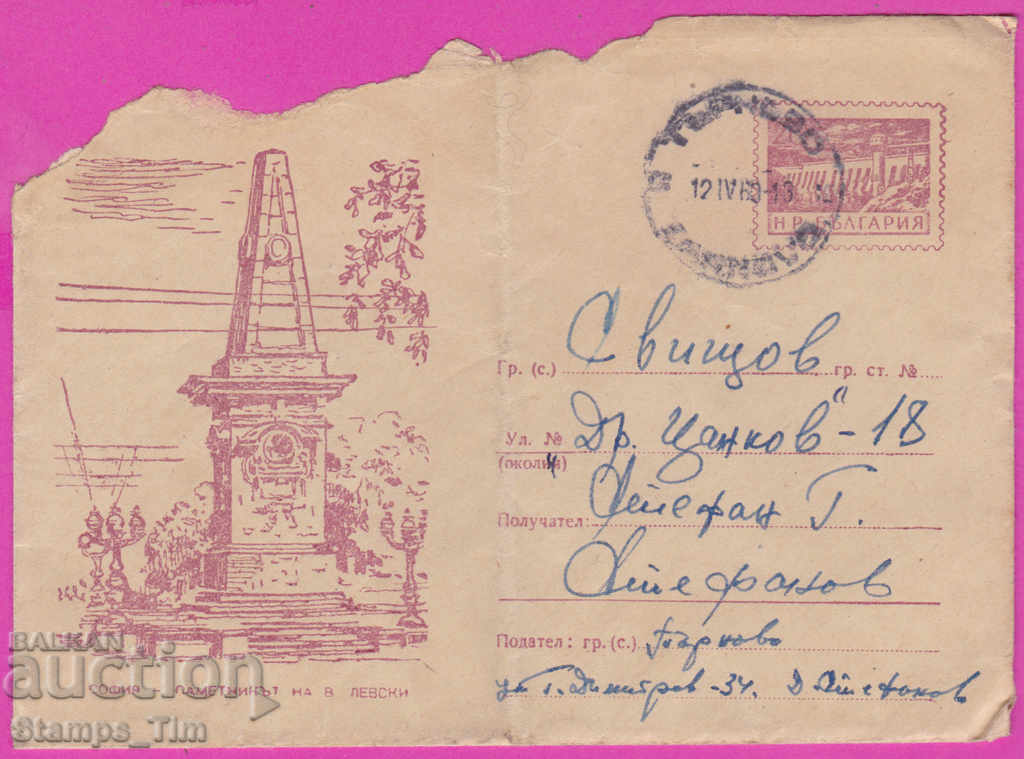 ТЪРНОВО
12 IV 60-10
Н.Р. БЪЛГАРИЯ
Гр. (с.) Свищов гр. ст. №
Ул. № „Др. Цанков" - 18
(околия)
Получател: Стефан Г.
Стефанов
Подател: гр. (с.) Търново
ул. Г. Димитров - 34. Д. Стефанов
СОФИЯ ПАМЕТНИКЪТ НА В. ЛЕВСКИ
BALKAN
auction
Stamps_Tim